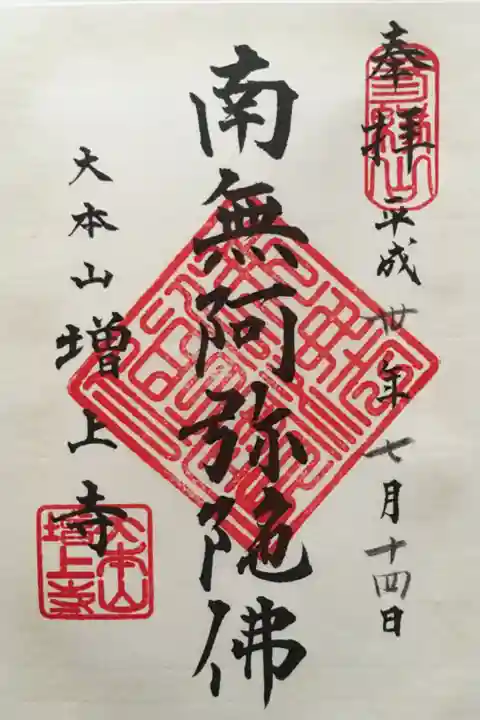 奉拝 平成卅年七月十四日
南無阿弥陀佛
大本山増上寺
大本山増上寺